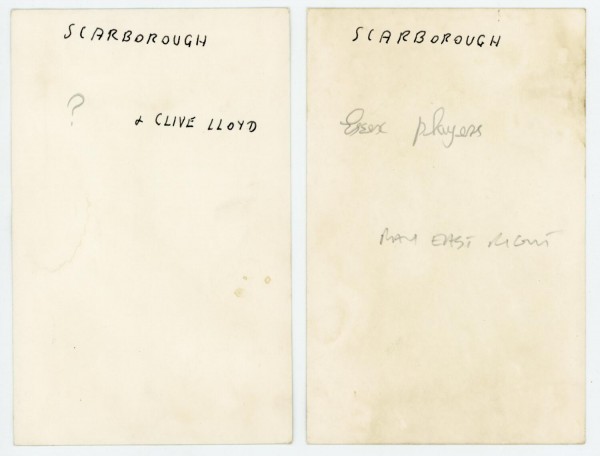 SCARBOROUGH
?
& CLIVE LLOYD
SCARBOROUGH
Essex players
RAY EAST RIGHT